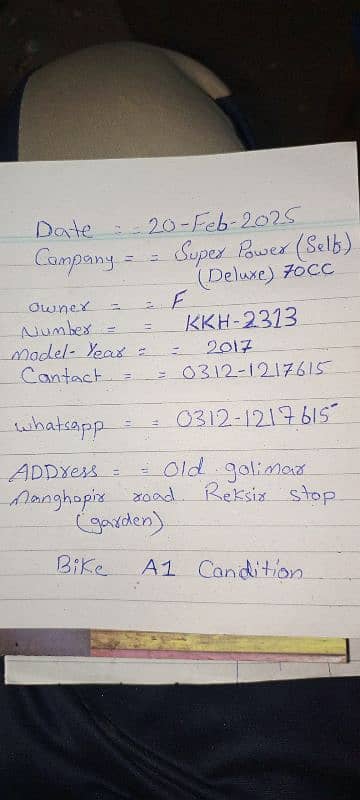 Date = = 20-Feb-2025
Company = = Super Power (Self)
(Deluxe) 70CC
Owner = = F
Number = = KKH-2313
Model-Year = = 2017
Cantact = = 0312-1217615
Whatsapp = = 0312-1217615
ADDress = = Old golimar
Manghopir road. Reksir stop
(garden)
Bike A1 Candition